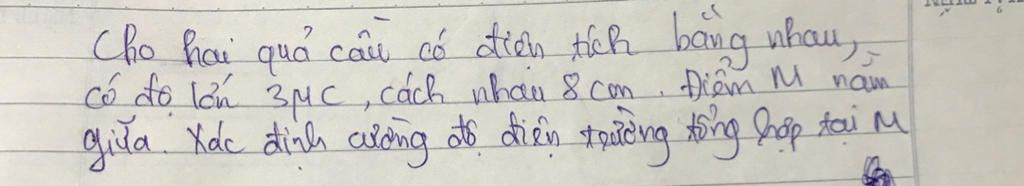 Cho hai quả cầu có điện tích bằng nhau,
có độ lớn 3μC, cách nhau 8 cm. Điểm M nằm
giữa. Xác định cường độ điện trường tổng hợp tại M